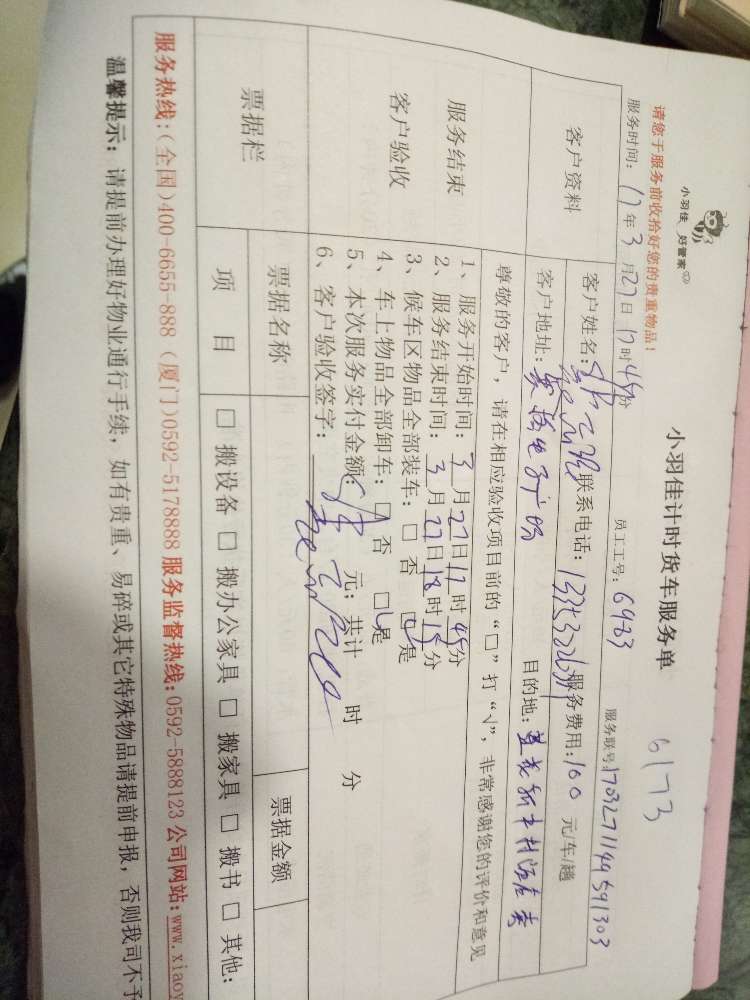 小羽佳 好管家
请您于服务前收拾好您的贵重物品!
小羽佳计时货车服务单
6173
服务时间: 17年3月27日17时45分 员工工号: 6983 服务联号:
客户资料
客户姓名: 联系电话: 服务费用: 100 元/车/趟
客户地址: 目的地:
服务结束
客户验收
尊敬的客户,请在相应验收项目前的“□”打“√”,非常感谢您的评价和意见
1、服务开始时间: 3月27日17时45分
2、服务结束时间: 3月27日18时15分
3、候车区物品全部装车: □ 否 □是
4、车上物品全部卸车: □ 否 □是
5、本次服务实付金额: 元; 共计 时 分
6、客户验收签字:
票据栏
票据名称 票据金额
项 目 □ 搬设备 □ 搬办公家具 □ 搬家具 □ 搬书 □ 其他:
服务热线:(全国)400-6655-888 (厦门)0592-5178888 服务监督热线:0592-5888123 公司网站:www.xiaoy
温馨提示: 请提前办理好物业通行手续, 如有贵重、易碎或其它特殊物品请提前申报, 否则我司不予